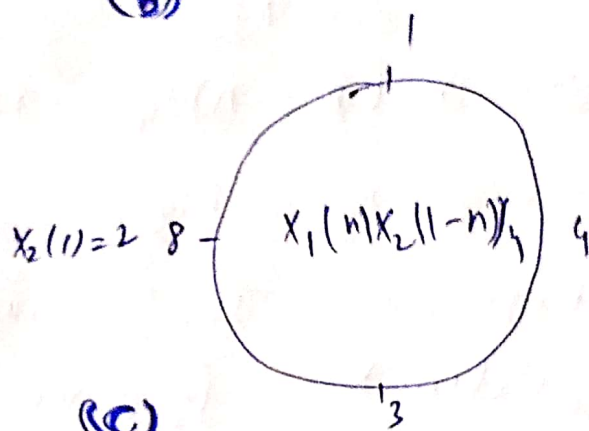 (B)
1
X₂(1)=2 8 X₁(n)X₂(1-n))₄ 4
3
(C)